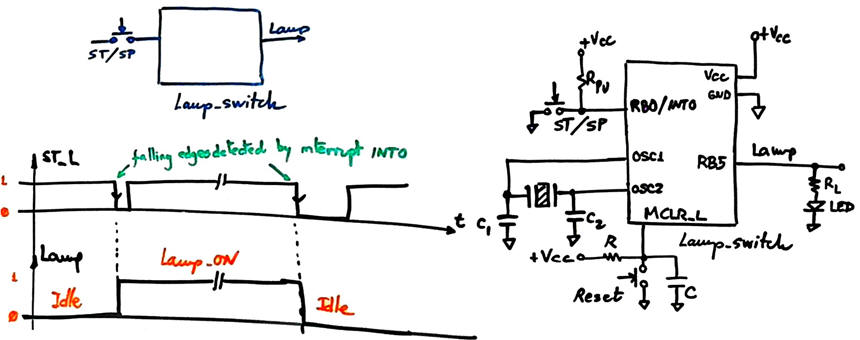 Lamp
ST/SP
Lamp_switch
ST_L
falling edges detected by interrupt INT0
1
0
t
Lamp
Lamp_ON
1
Idle
Idle
0
+Vcc
+Vcc
RPU
Vcc
GND
RB0/INT0
ST/SP
OSC1
RB5
Lamp
OSC2
RL
LED
C1
C2
MCLR_L
Lamp_switch
+Vcc
R
Reset
C